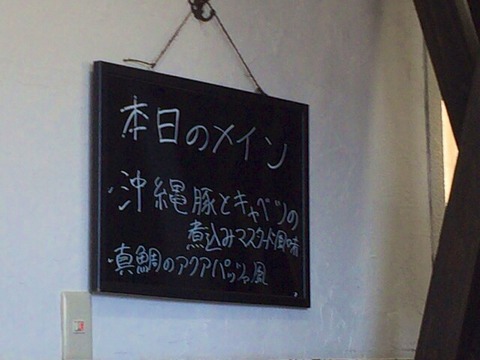 本日のメイン
・沖縄豚とキャベツの
煮込みマスタード風味
・真鯛のアクアパッツァ風